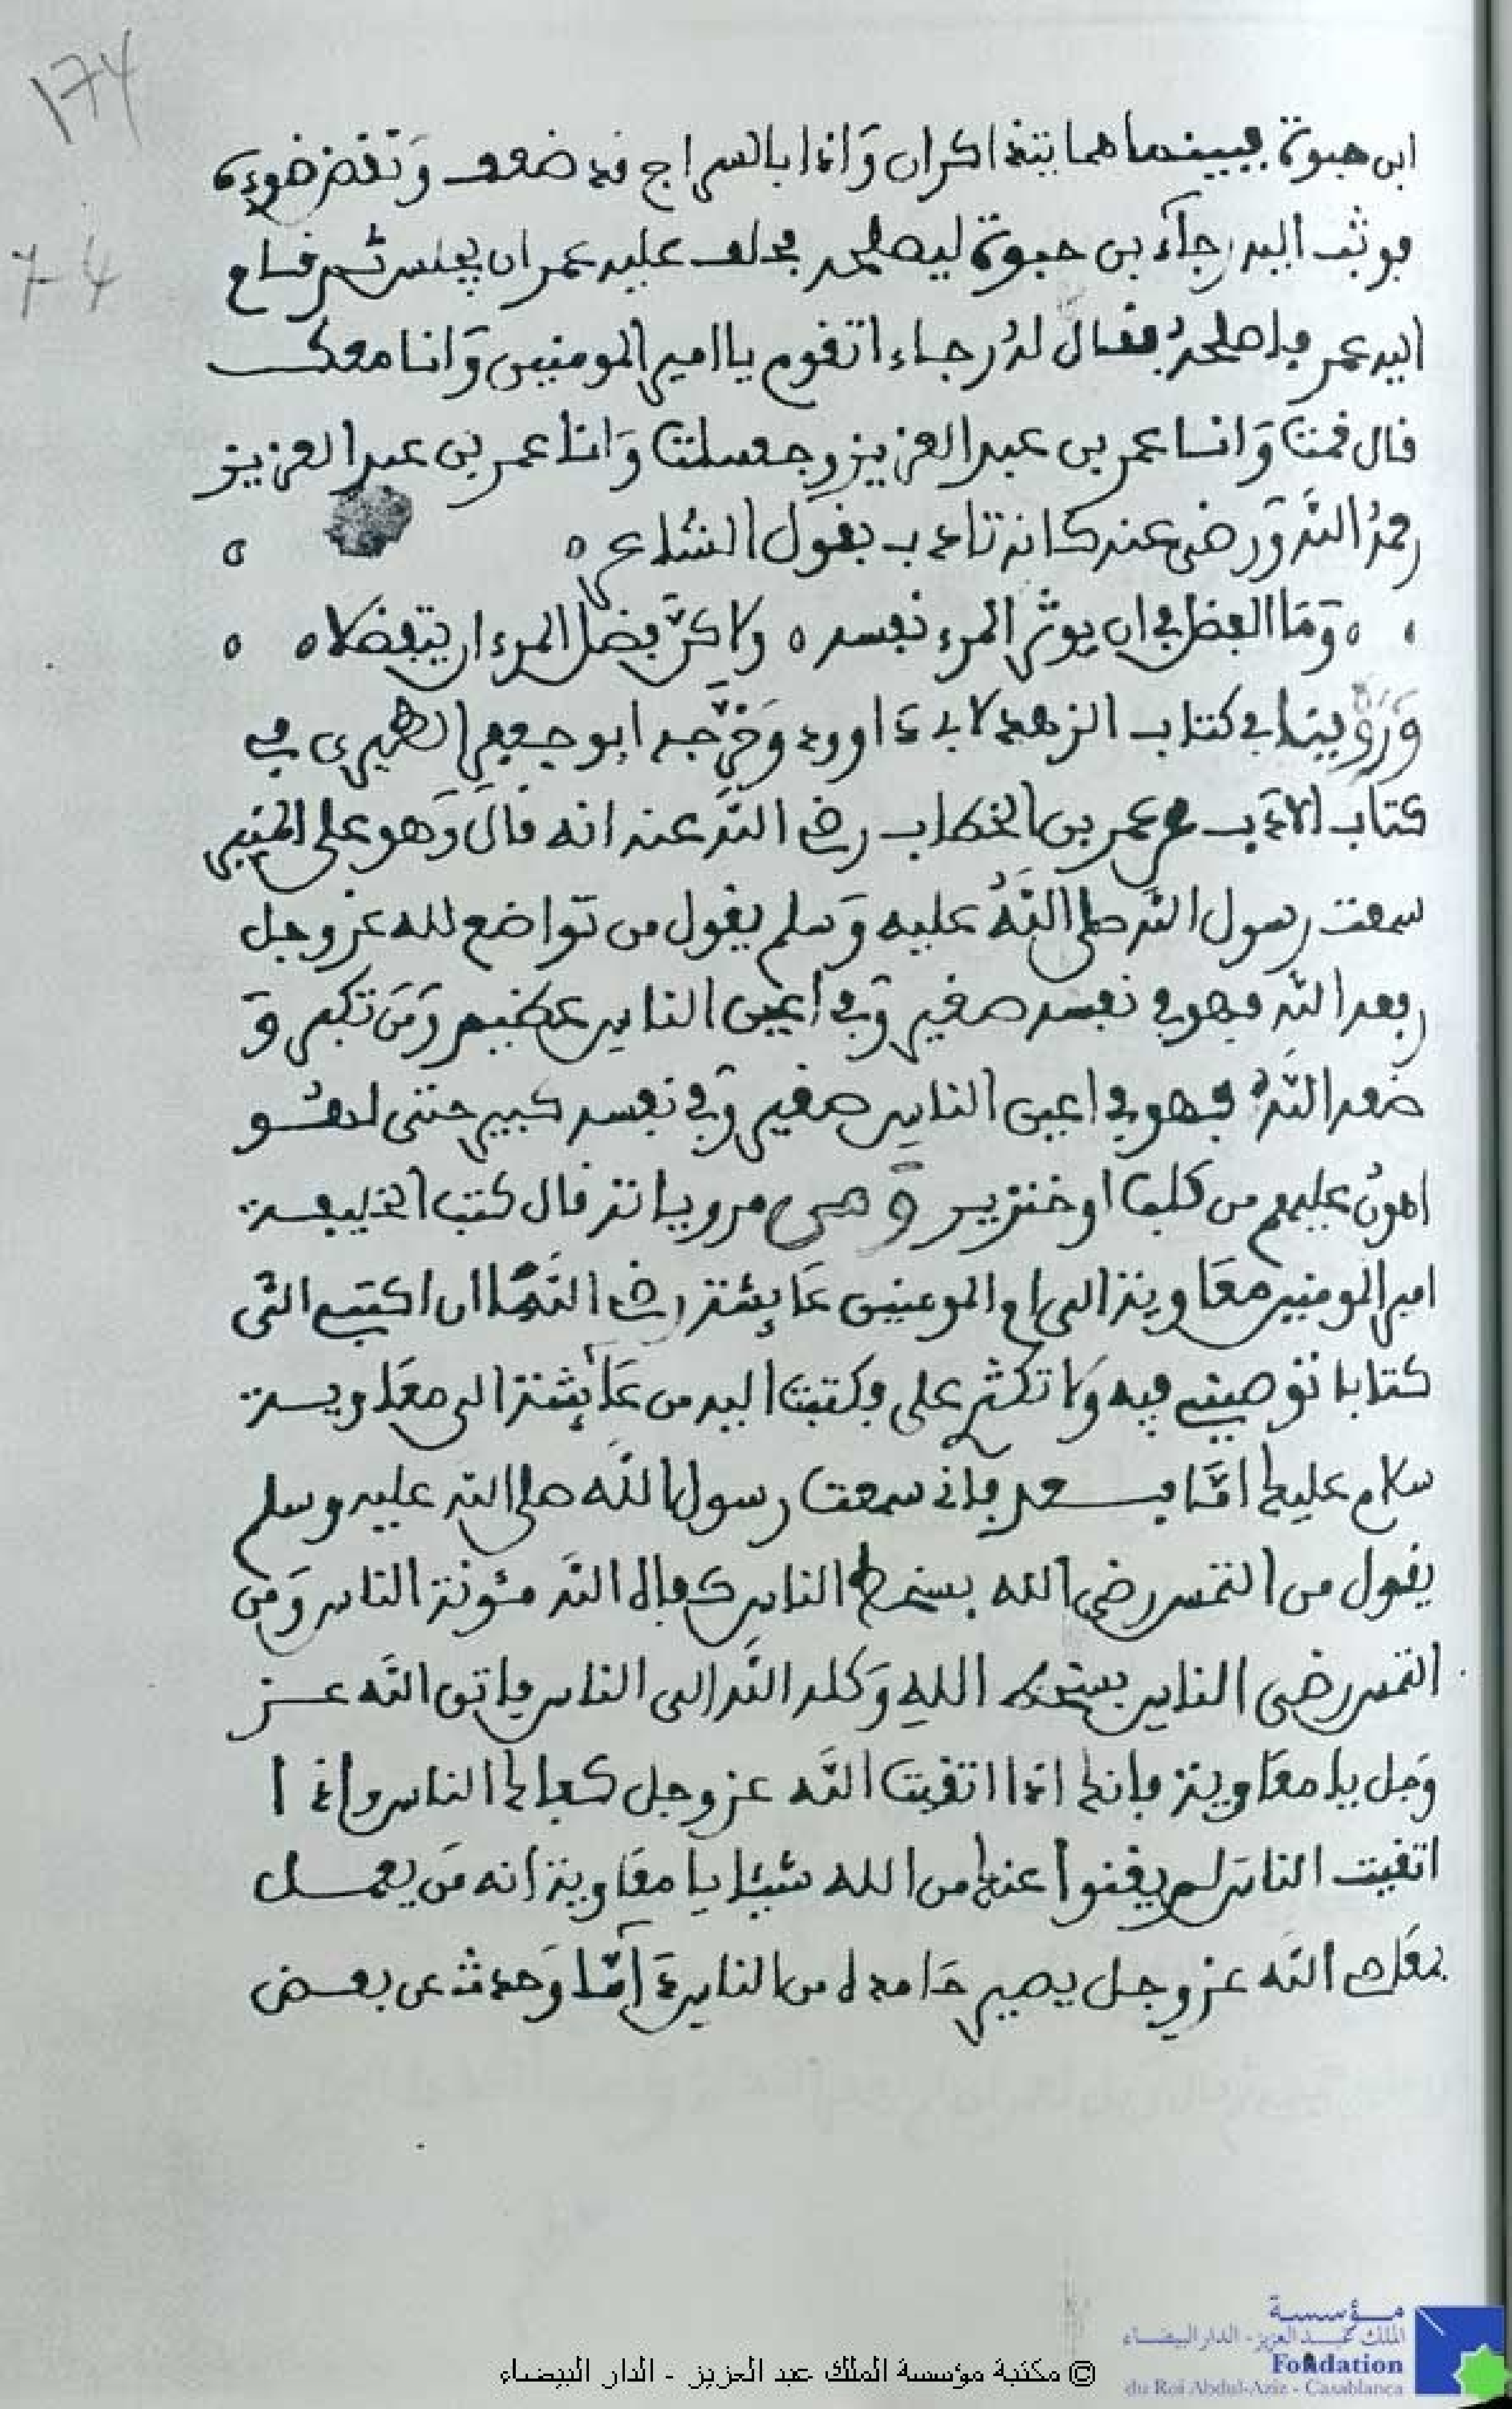 174
74
ابن حيوة فبينما هما يتذاكران وَاذا بالسراج قد ضعف وَنقص ضوءه
فوثب اليه رجآء بن حيوة ليصلحه فحلف عليه عمر ان يجلس ثم قام
اليه عمر فاصلحهُ فقال لهُ رجاء اتقوم يا امير المومنين وَانا معك
قال قمت وَانا عمر بن عبد العزيز وجلست وَانا عمر بن عبد العزيز
رحمهُ اللَّه وَرضى عنه كانه تادب بقول الشاعر ه ه
ه وَمَا الفضل في ان يوثر المرء نفسه ه ولاكنَّ فضل المرء ان يتفضلا ه ه
وَرُوِّينا في كتاب الزهد لابي داوود وَخرَّجه ابو جعفر الطبري في
كتاب الاداب عن عمر بن الخطاب رضي اللَّه عنه انه قال وَهو على المنبر
سمعت رسول اللَّه صلى اللَّهُ عليه وَسلم يقول من تواضع لله عز وجل
رفعه اللَّه فهو في نفسه صغير وَفي اعين الناس عظيم وَمَن تكبر وَ
ضعه اللَّهُ فهو في اعين الناس صغير وَفي نفسه كبير حتى لهو
اهونُ عليهم من كلب او خنزير وَمن مروياته قال كتب الخليفة
امير المومنين معَاوية الى ام المومنين عَايشة رضي اللَّه ان اكتبي الَي
كتابا توصيني فيه وَلا تكثري علي فكتبت اليه من عَائشة الى معَاوية
سلام عليك امَّا بعد فاني سمعت رسول اللَّه صلى اللَّه عليه وسلم
يقول من التمس رضى الله بسخط الناس كفاه اللَّه مئونة الناس وَمن
التمس رضى الناس بسخط اللهِ وَكله اللَّه الى الناس فاتق اللَّه عز
وَجل يا معَاوية فانك اذا اتقيت اللَّه عز وجل كفاك الناس واذا
اتقيت الناسَ لم يغنوا عنك من الله شيئا يا معَاوية انه مَن يعمل
اللَّه عز وجل يصير حَامده من الناس ذَآمًّا وَحدث عن بعض
مؤسسة
الملك عبد العزيز - الدار البيضاء
Fondation
du Roi Abdul-Aziz - Casablanca
© مكتبة مؤسسة الملك عبد العزيز - الدار البيضاء